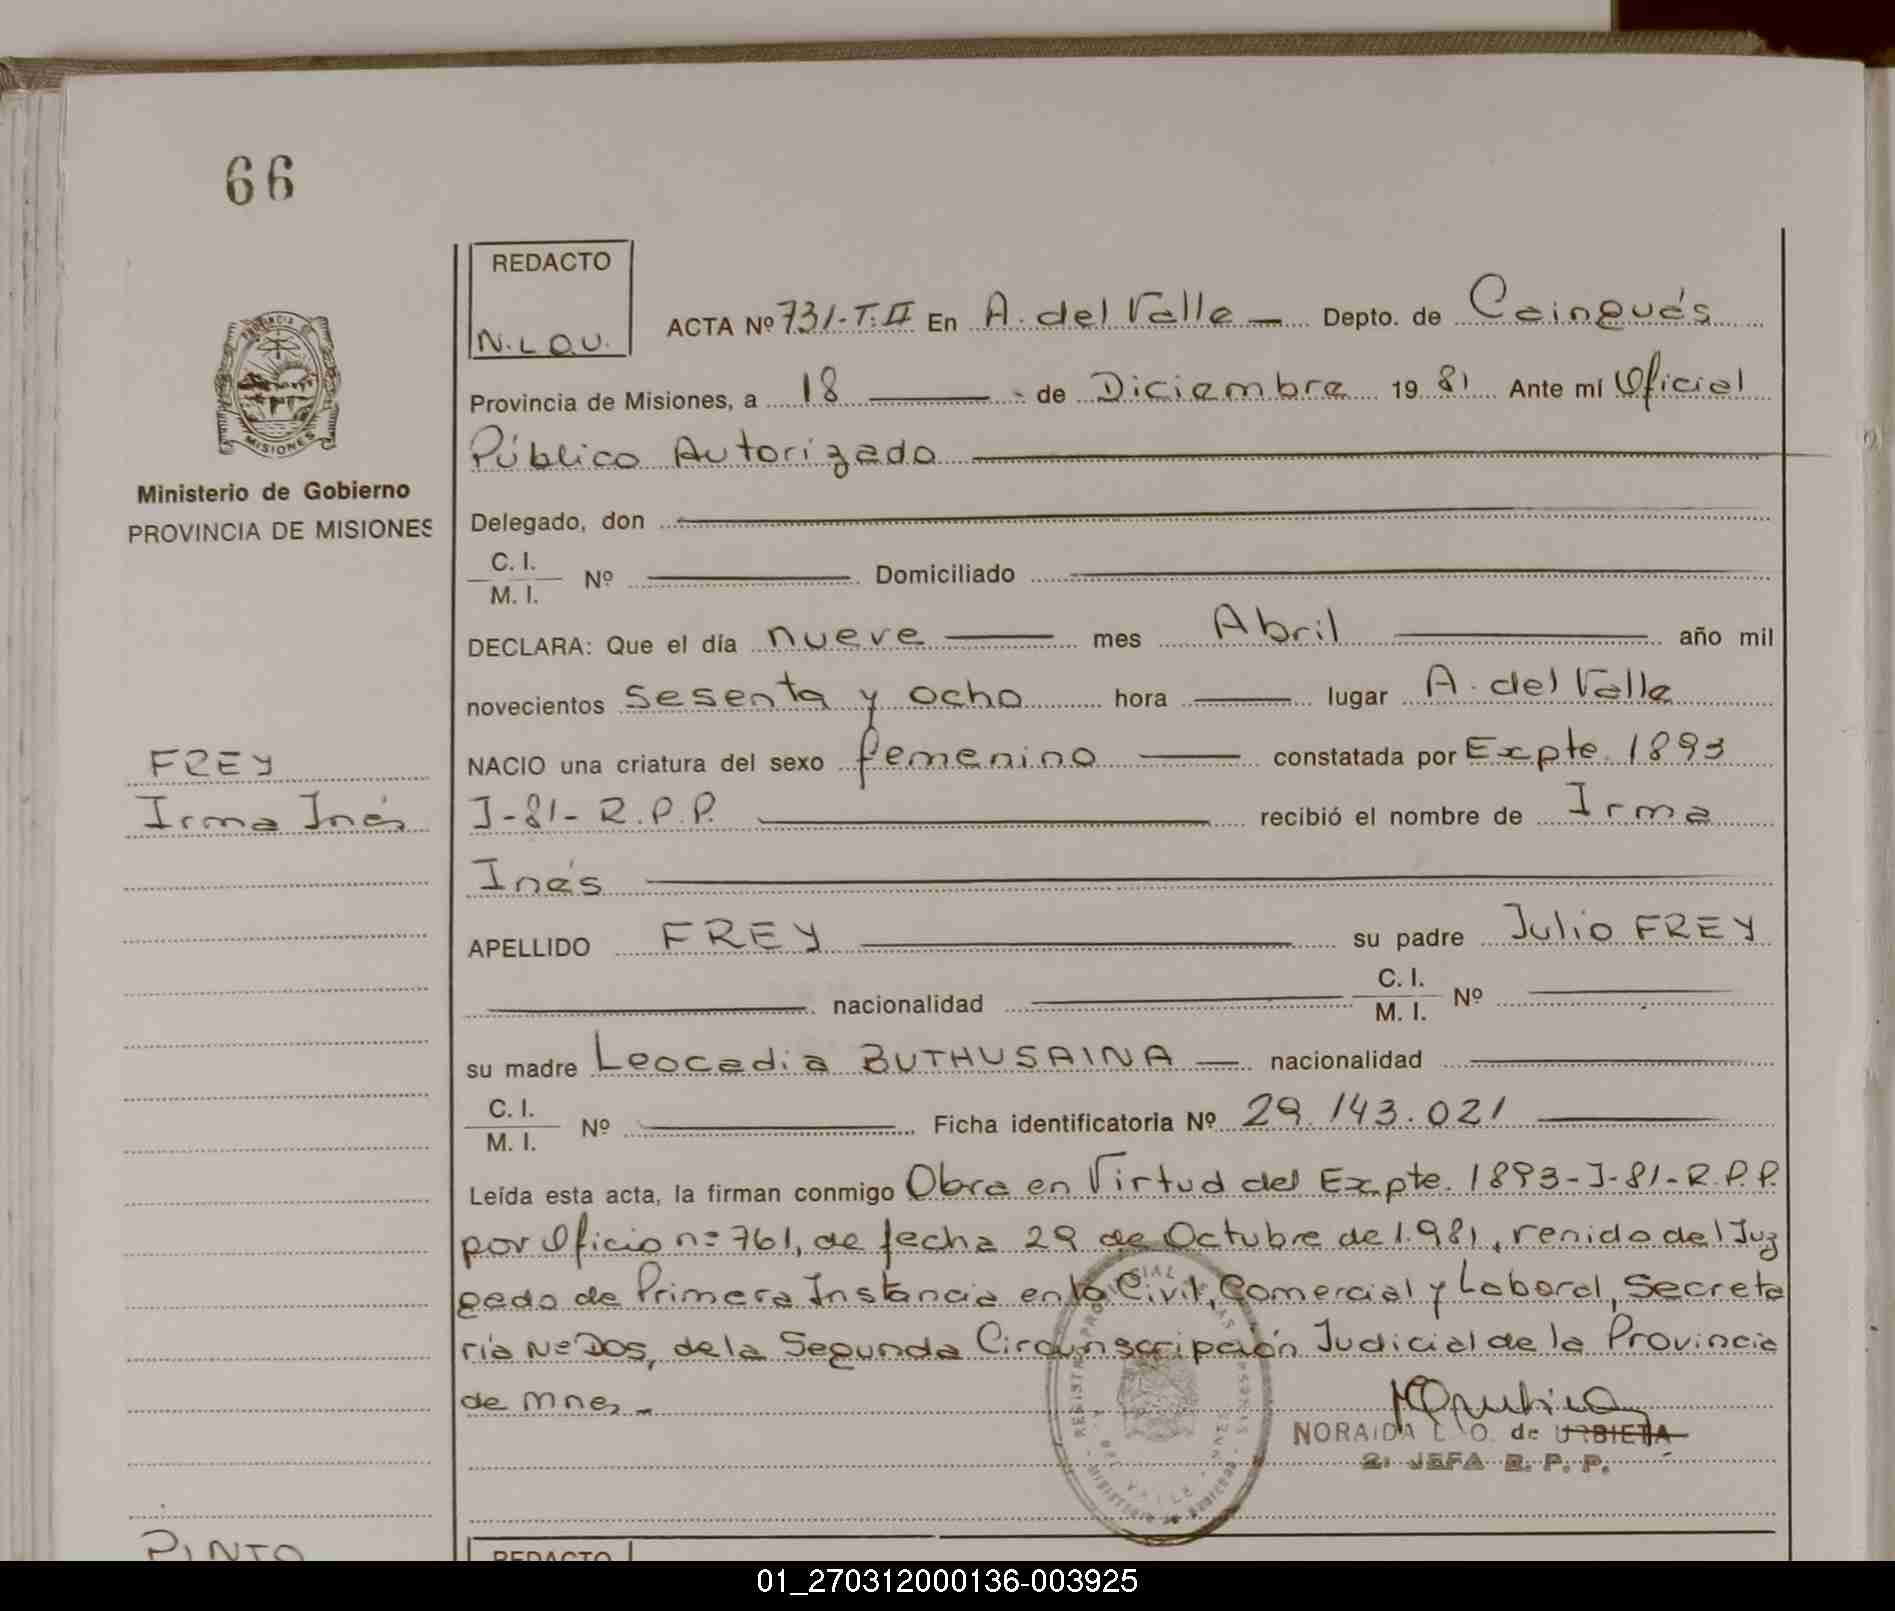 66
REDACTO
N.L.O.U.
ACTA Nº 731-T.II En A. del Valle Depto. de Cainguás
PROVINCIA
MISIONES
Provincia de Misiones, a 18 de Diciembre 19 81 Ante mí Oficial
Público Autorizado
Ministerio de Gobierno
PROVINCIA DE MISIONES
Delegado, don
C. I.
M. I. Nº Domiciliado
DECLARA: Que el día nueve mes Abril año mil
novecientos sesenta y ocho hora lugar A. del Valle
FREY
NACIO una criatura del sexo femenino constatada por Expte. 1893
Irma Inés
J-81-R.P.P. recibió el nombre de Irma
Inés
APELLIDO FREY su padre Julio FREY
nacionalidad C. I. M. I. Nº
su madre Leocadia BUTHUSAINA nacionalidad
C. I.
M. I. Nº Ficha identificatoria Nº 29.143.021
Leída esta acta, la firman conmigo Obra en Virtud del Expte. 1893-J-81-R.P.P.
por Oficio nº 761, de fecha 29 de Octubre de 1.981, venido del Juz
gado de Primera Instancia en lo Civil, Comercial y Laboral, Secreta
ría Nº DOS, de la Segunda Circunscripción Judicial de la Provincia
de Mnes
NORAIDA L. O. de URBIETA
2ª JEFA R. P. P.
PINTO
REDACTO
01_270312000136-003925